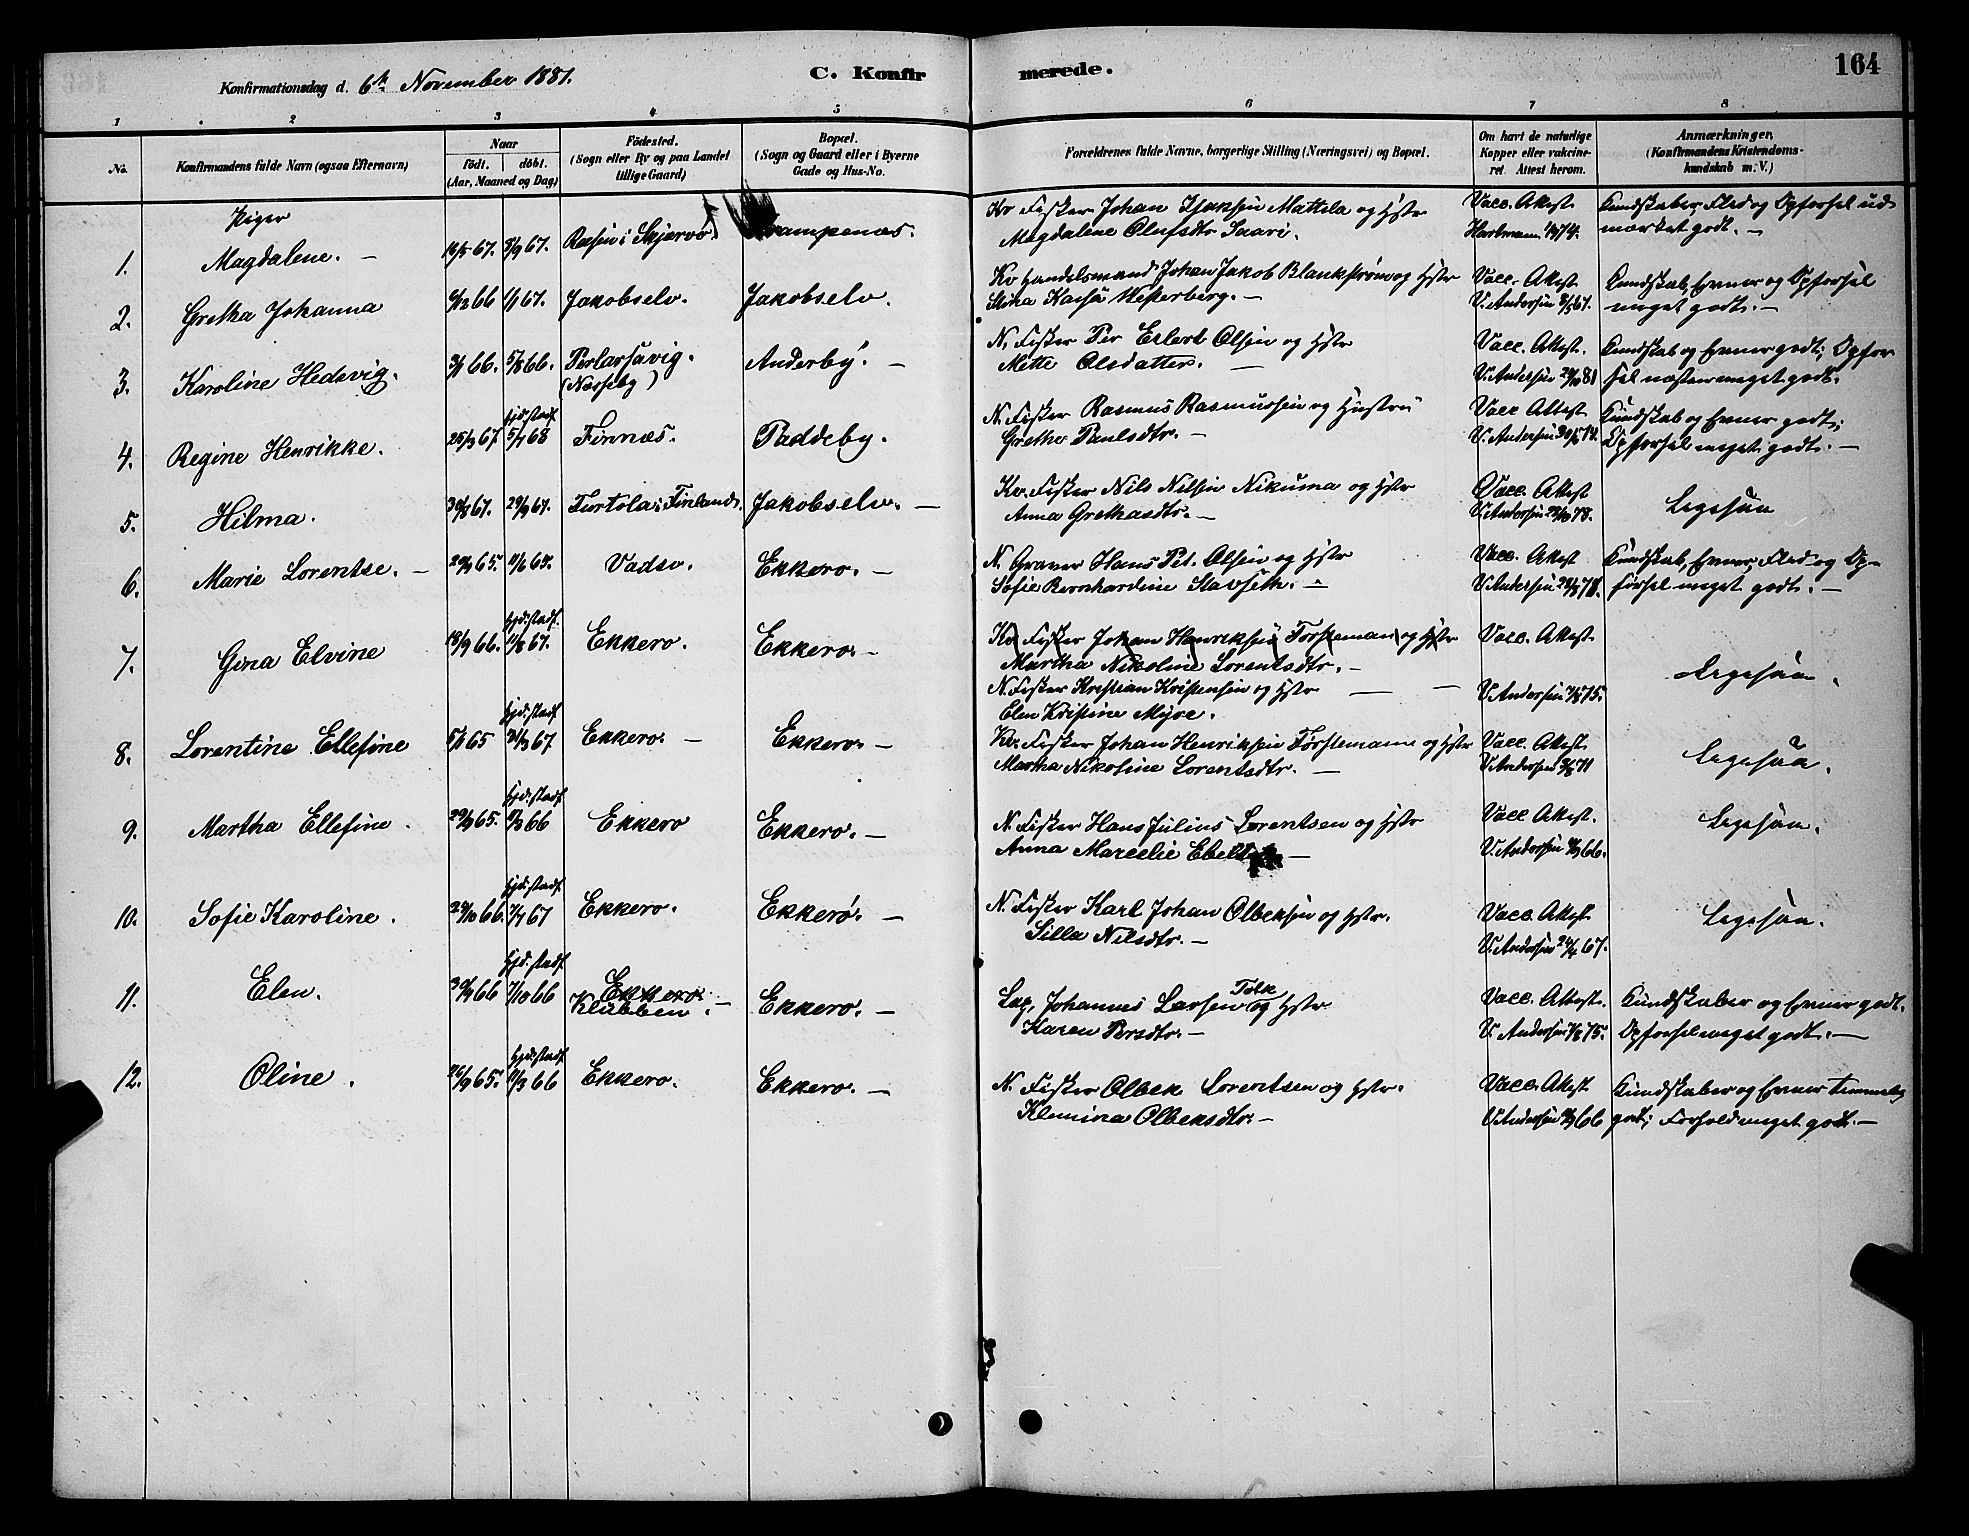 Konfirmationsdag d. 6te November 1881.
C. Konfir
merede.
164
1 2 3 4 5 6 7 8
No.
Konfirmandens fulde Navn (ogsaa Efternavn)
Naar
födt. döbt.
(Aar, Maaned og Dag)
Födested.
(Sogn eller By og paa Landet
tillige Gaard)
Bopæl.
(Sogn og Gaard eller i Byerne
Gade og Hus-No.
Forældrenes fulde Navne, borgerlige Stilling (Næringsvei) og Bopæl.
Om havt de naturlige
Kopper eller vakcine-
ret. Attest herom.
Anmærkninger.
(Konfirmandens Kristendoms-
kundskab m. V.)
Piger
1. Magdalene. — 67. 67. i Skjervø. Krampenæs.
Kv. Fisker Johan Isaksen Mattila og Hstr
Magdalene Olufsdtr Saari.
Vacc. Attest
Hartmann 74.
Kundskaber, Flid og Opførsel ud
mærket godt. —
2. Gretha Johanna 66 67. Jakobselv. Jakobselv.
Kv Handelsmand Johan Jakob Blankstrøm og Hstr
Stina Kaisa Westerberg. —
Vacc. Attest.
V. Andersen 67.
Kundskab, Evner og Opførsel
meget godt. —
3. Karoline Hedevig. 66. 66. (Næsseby) Anderby. —
N. Fisker Per Erlert Olsen og Hstr
Mette Olsdatter. —
Vacc. Attest.
V. Andersen 29/10 81
Kundskab og Evner godt; Opfør
sel næsten meget godt.
4. Regine Henrikke. 25/9 67. hjd. stadf. 5/7 68 Finnæs. Paddeby.
N. Fisker Rasmus Rasmussen og Hustru
Grethe Paulsdtr. —
Vacc Attest
V. Andersen 74.
Kundskab og Evner godt;
Opførsel meget godt. —
5. Hilma. 67. 29/9 67. Turtola i Finland. Jakobselv. —
Kv. Fisker Nils Nilsen Nikuma og Hstr
Anna Grethasdtr. —
Vacc. Attest
V. Andersen 78.
Ligesaa
6. Marie Lorentse. — 65. 65. Vadsø. Ekkerø. —
N. Graver Hans Pet. Olsen og Hstr
Sofie Bernhardine Stavseth. —
Vacc. Attest
V. Andersen 78.
Kundskab, Evner, Flid og Op-
førsel meget godt. —
7. Gina Elvine 18/9 66. hjd. stadf. 67. Ekkerø. Ekkerø. —
Kv. Fisker Johan Henriksen Førsteman og Hstr
Martha Nikoline Lorentsdtr. —
N. Fisker Kristian Kristensen og Hstr —
Elen Kristine Myre.
Vacc. Attest.
V. Andersen 75.
Ligesaa.
8. Lorentine Ellefine 65 hjd. stadf. 67 Ekkerø. — Ekkerø. —
Kv. Fisker Johan Henriksen Førstemann og Hstr
Martha Nikoline Lorentsdtr. —
Vacc. Attest
V. Andersen 71
Ligesaa.
9. Martha Ellefine. 65. hjd. stadf. 66 Ekkerø Ekkerø. —
N. Fisker Hans Julius Lorentsen og Hstr
Anna Marcelie —
Vacc Attest.
V. Andersen 66.
Ligesaa.
10. Sofie Karoline. 66. hjd. stadf. 7/7 67 Ekkerø. Ekkerø. —
N. Fisker Karl Johan Olbeksen og Hstr.
Silla Nilsdtr. —
Vacc. Attest.
V. Andersen 67.
Ligesaa.
11. Elen. 66 hjd. stadf. 7/10 66 Ekkerø. Klubben. — Ekkerø. —
Lap, Johannes Larsen Tolk og Hstr
Karen Persdtr. —
Vacc. Attest.
V. Andersen 75.
Kundskaber og Evner godt.
Opførsel meget godt. —
12. Oline. 26/9 65. hjd. stadf. 66 Ekkerø. Ekkerø. —
N. Fisker Olbek Lorentsen og Hstr.
Klemina Olbeksdtr. —
Vacc. Attest
V. Andersen 66
Kundskaber og Evner temmelig
godt; Forhold meget godt. —